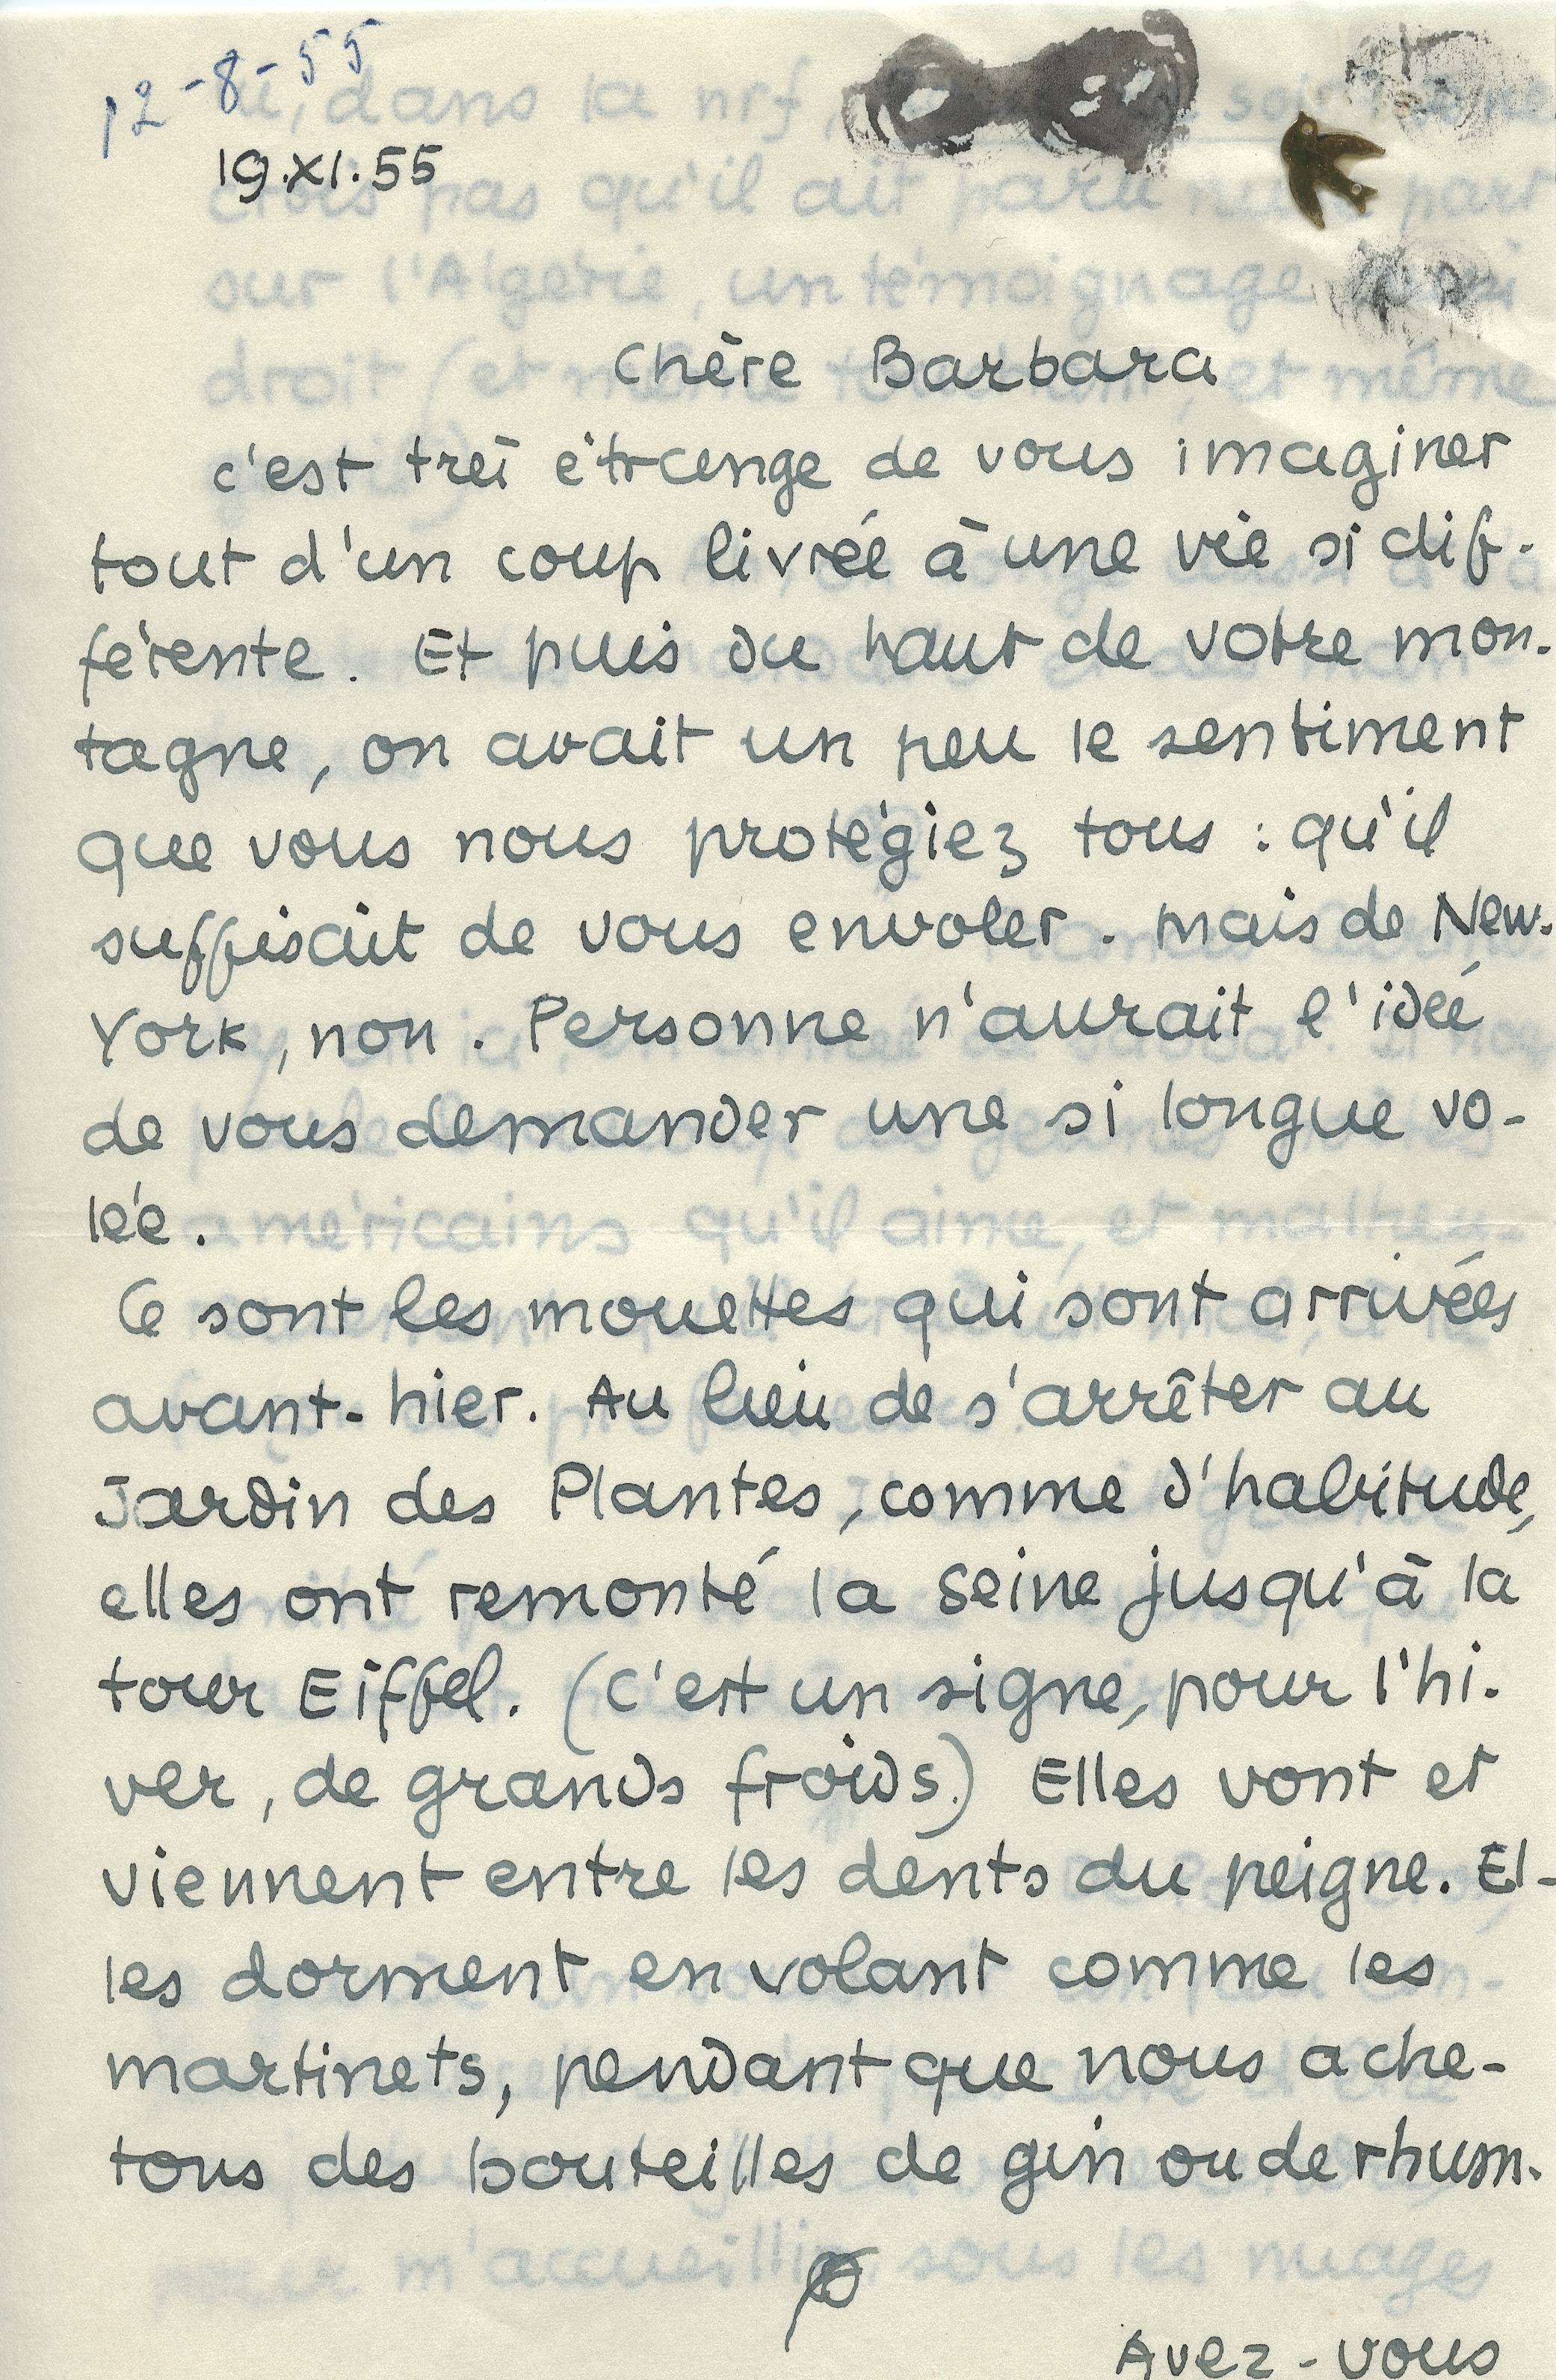 12-8-55
19.XI.55
Chère Barbara
c'est très étrange de vous imaginer
tout d'un coup livrée à une vie si dif-
férente. Et puis du haut de votre mon-
tagne, on avait un peu le sentiment
que vous nous protégiez tous : qu'il
suffisait de vous envoler. Mais de New-
York, non. Personne n'aurait l'idée
de vous demander une si longue vo-
lée.
Ce sont les mouettes qui sont arrivées
avant-hier. Au lieu de s'arrêter au
Jardin des Plantes, comme d'habitude,
elles ont remonté la Seine jusqu'à la
tour Eiffel. (C'est un signe, pour l'hi-
ver, de grands froids.) Elles vont et
viennent entre les dents du peigne. El-
les dorment en volant comme les
martinets, pendant que nous ache-
tons des bouteilles de gin ou de rhum.
Avez-vous